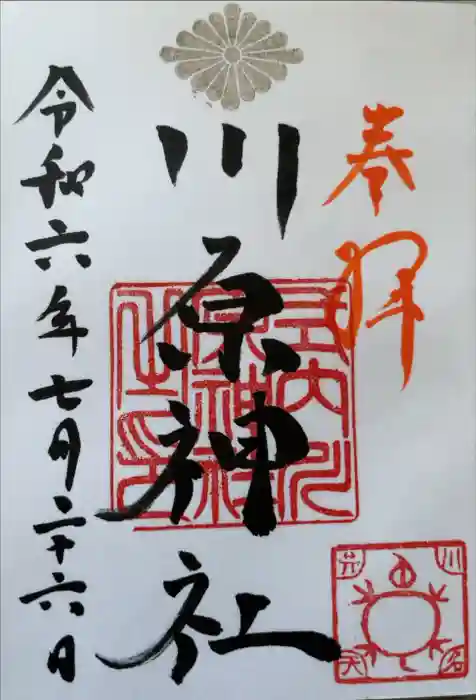 奉拝
川原神社
令和六年七月二十六日
式内川
原神社
之印
川
名
弁
天